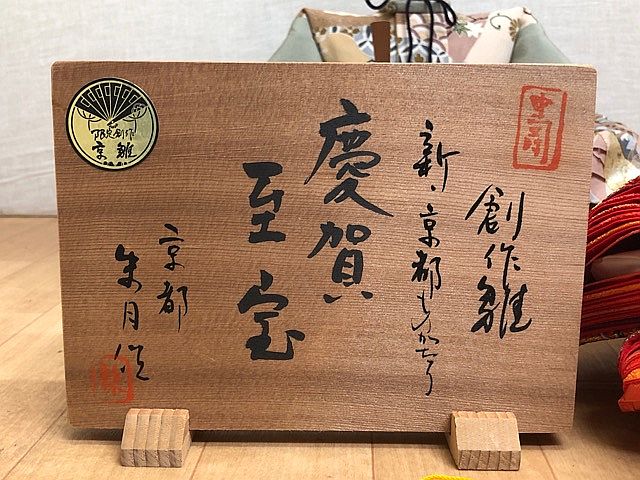 創作雛
新・京都ものがたり
慶賀
至宝
京都
朱月作
限定創作
京雛